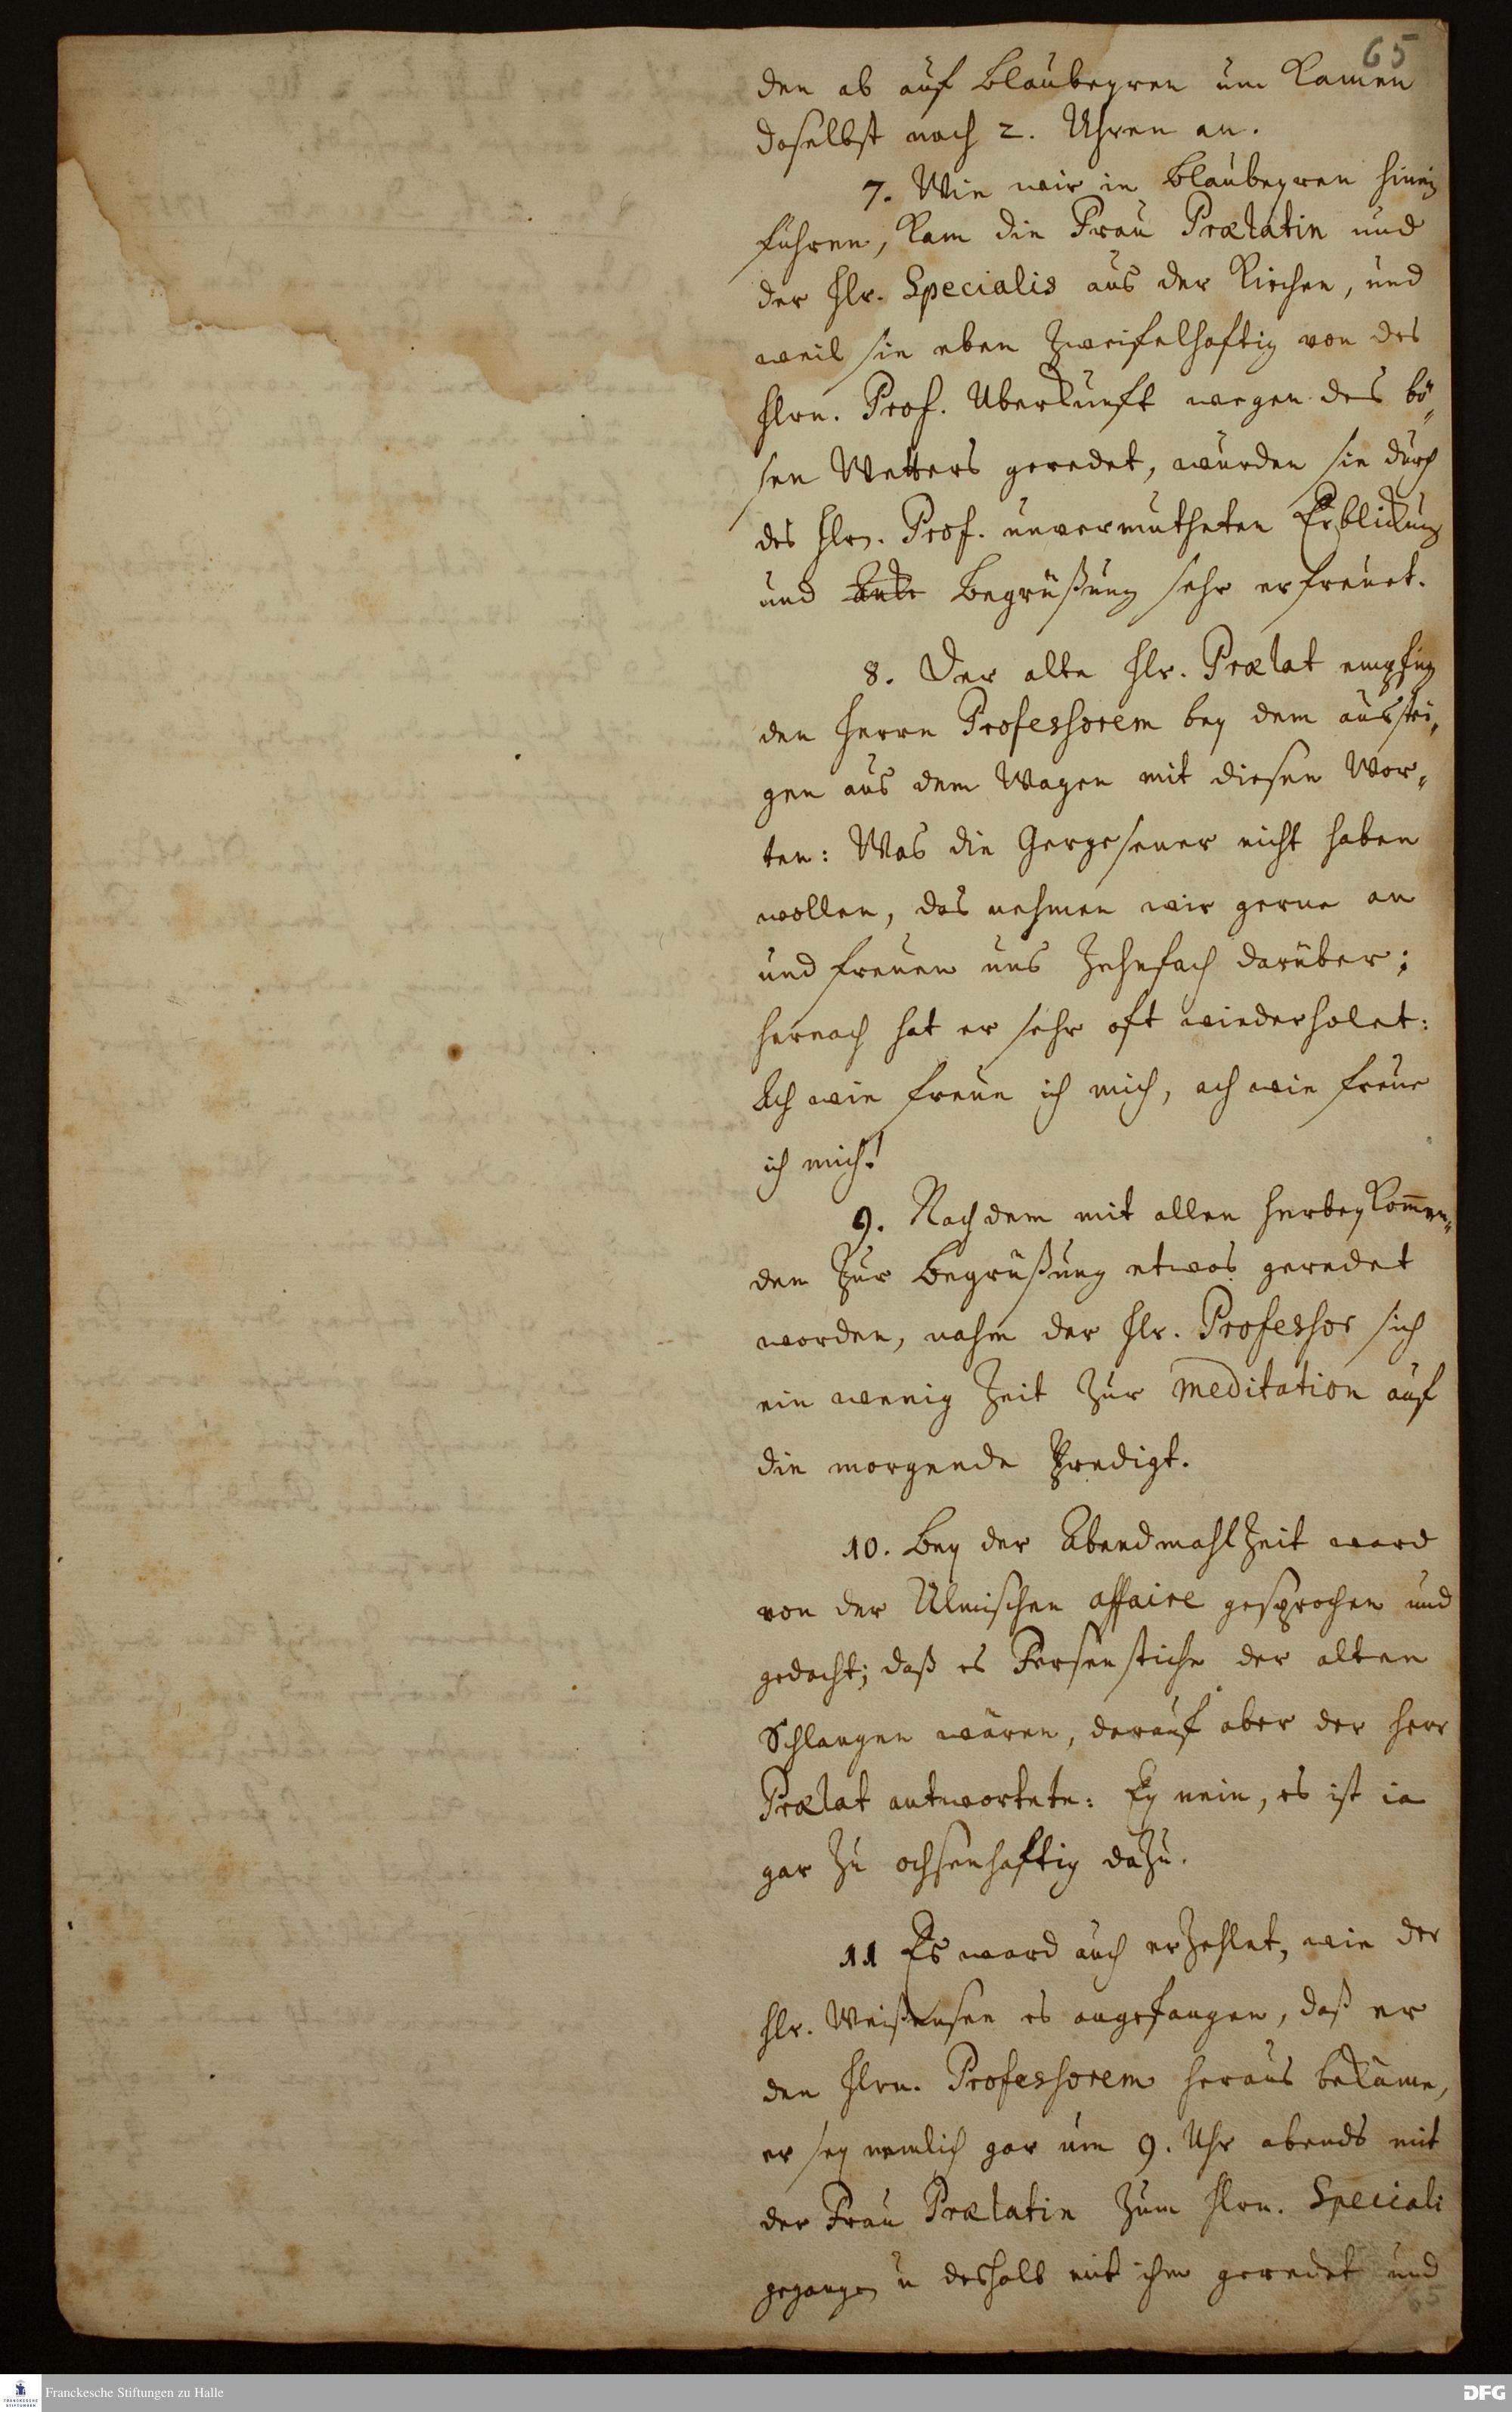 65
den ab auf Blaubeyren um kamen
daselbst nach 2. Uhren an.
7. Wie wir in Blaubeyren hinein
fuhren, kam die Frau Prælatin und
der Hr. Specialis aus der Kirchen, und
weil sie eben zweifelhaftig von des
Hrn. Prof. Uberkunft wegen des bö-
sen Wetters geredet, wurden sie durch
des Hrn. Prof. unvermutheten Erblickung
und Begrüßung sehr erfreuet.
8. Der alte Hr. Prælat empfing
den Herrn Professorem bey dem ausstei-
gen aus dem Wagen mit diesen Wor-
ten: Was die Gergesener nicht haben
wollen, das nehmen wir gerne an
und freuen uns zehnfach darüber;
hernach hat er sehr oft wiederholet:
Ach wie freue ich mich, ach wie freue
ich mich!
9. Nachdem mit allen herbeykom̅en-
den zur Begrüßung etwas geredet
worden, nahm der Hr. Professor sich
ein wenig Zeit zur meditation auf
die morgende Predigt.
10. Bey der Abendmahlzeit ward
von der Ulmischen affaire gesprochen und
gedacht; daß es Fersenstiche der alten
Schlangen wären, darauf aber der Herr
Prælat antwortete: Ey nein, es ist ia
gar zu ochsenhaftig dazu.
11 Es ward auch erzehlet, wie der
Hr. Weißensee es angefangen, daß er
den Hrn. Professorem heraus bekäme,
er sey nemlich gar um 9. Uhr abends mit
der Frau Prælatin zum Hrn. Speciali
gegangen u deshalb mit ihm geredet und
65
Franckesche Stiftungen zu Halle
DFG